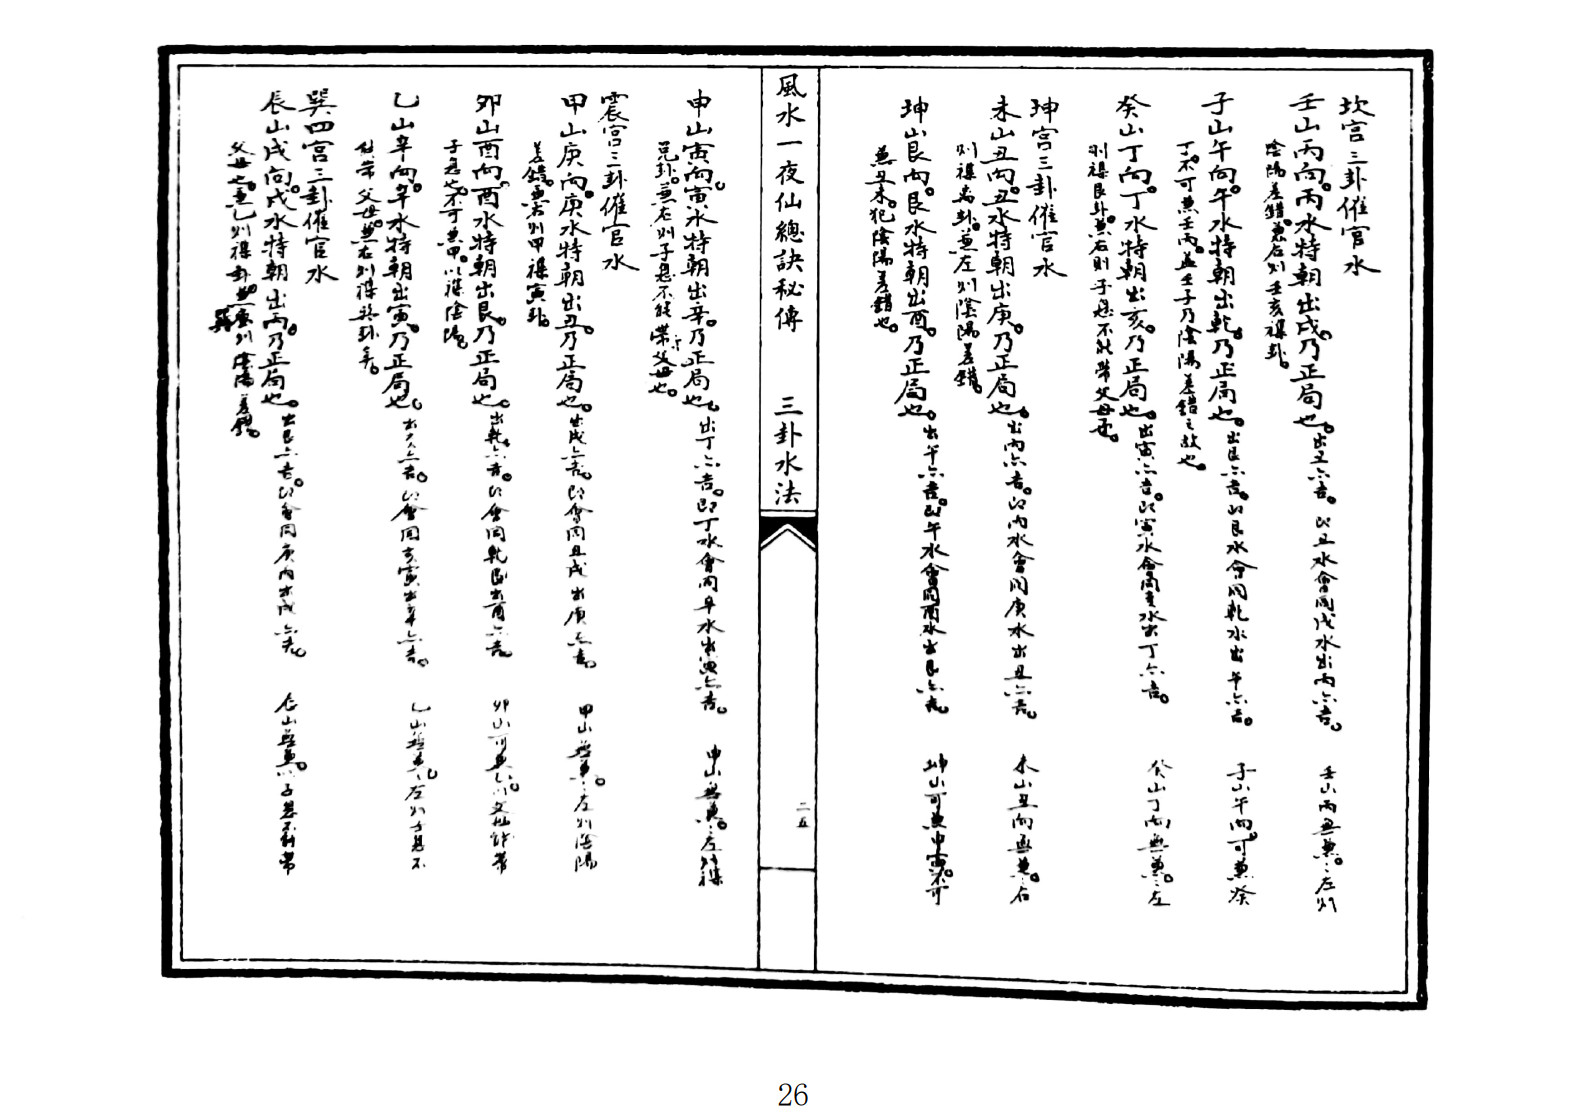 坎宫三卦催官水
壬山丙向。丙水特朝出戌。乃正局也。出丑亦吉。以丑水會同戌水出丙亦吉。 壬山丙丑無兼。左则
陰陽差錯。兼右则壬亥襍卦。
子山午向。午水特朝出乾。乃正局也。出艮亦吉。以艮水會同乾水出午亦吉。 子山午向。可兼癸
丁。不可兼壬丙。盖壬子乃陰陽差錯之故也。
癸山丁向。丁水特朝出亥。乃正局也。出寅亦吉。以寅水會同亥水出丁亦吉。 癸山丁向無兼。左
则襍艮卦。兼右則子息不能帶父母。
坤宫三卦催官水
未山丑向。丑水特朝出庚。乃正局也。出丙亦吉。以丙水會同庚水出丑亦吉。 未山丑向無兼。右
则襍离卦。兼左则陰陽差錯。
坤山艮向。艮水特朝出酉。乃正局也。出午亦吉。以午水會同酉水出艮亦吉。 坤山可兼申寅。不可
兼丑未。犯陰陽差錯也。
風水一夜仙總訣秘傳 三卦水法
二五
申山寅向。寅水特朝出辛。乃正局也。出丁亦吉。即丁水會同辛水出寅亦吉。 申山無兼。左则襍
兑卦。兼右则子息不能帶父母也。
震宫三卦催官水
甲山庚向。庚水特朝出丑。乃正局也。出戌亦吉。即會同丑戌出庚亦吉。 甲山無兼。左则陰陽
差錯。兼右则甲襍寅卦。
卯山酉向。酉水特朝出艮。乃正局也。出乾亦吉。以會同乾艮出酉亦吉。 卯山可兼乙。以父母能帶
子息也。不可兼甲。以襍陰陽。
乙山辛向。辛水特朝出寅。乃正局也。出亥亦吉。以會同亥寅出辛亦吉。 乙山無兼。左则子息不
能帶父母。兼右则襍卦矣。
巽四宫三卦催官水
辰山戌向。戌水特朝出丙。乃正局也。出庚亦吉。以會同庚丙出戌亦吉。 辰山無兼。以子息不能帶
父母也。兼乙则襍卦。兼巽则陰陽差錯。
26